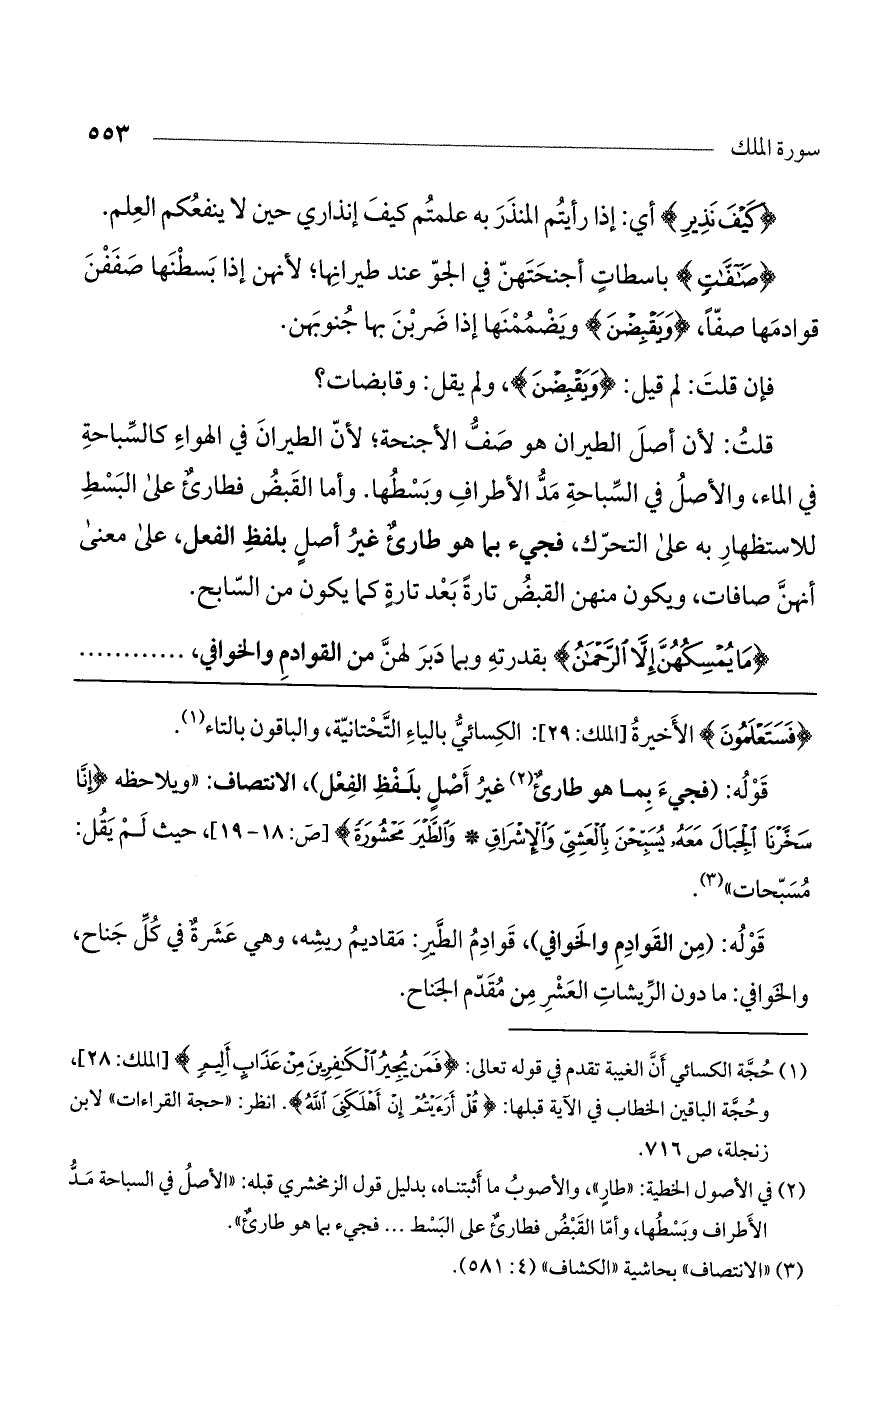 سورة الملك ٥٥٣
﴿كَيْفَ نَذِيرِ﴾ أي: إذا رأيتُم المنذَرَ به علمتُم كيفَ إنذاري حين لا ينفعُكم العِلم.
﴿صَٰٓفَّٰتٍ﴾ باسطاتٍ أجنحَتَهنّ في الجوّ عند طيرانِها؛ لأنهن إذا بَسطْنَها صفَفْنَ
قوادمَها صفّاً، ﴿وَيَقْبِضْنَ﴾ ويَضْمُمْنَها إذا ضَربْنَ بها جُنوبَهن.
فإن قلتَ: لم قيل: ﴿وَيَقْبِضْنَ﴾، ولم يقل: وقابضات؟
قلتُ: لأن أصلَ الطيران هو صَفُّ الأجنحة؛ لأنّ الطيرانَ في الهواءِ كالسِّباحةِ
في الماء، والأصلُ في السِّباحةِ مَدُّ الأطرافِ وبَسْطُها. وأما القَبضُ فطارئٌ علىٰ البَسْطِ
للاستظهارِ به علىٰ التحرّك، فجيء بما هو طارئٌ غيرُ أصلٍ بلفظِ الفعل، علىٰ معنىٰ
أنهنَّ صافات، ويكون منهن القبضُ تارةً بَعْد تارةٍ كما يكون من السّابح.
﴿مَا يُمْسِكُهُنَّ إِلَّا ٱلرَّحْمَٰنُ﴾ بقدرتهِ وبما دَبرَ لهنَّ من القوادمِ والخوافي، ............
﴿فَسَتَعْلَمُونَ﴾ الأَخيرةُ [الملك: ٢٩]: الكِسائيُّ بالياءِ التَّحْتانيّة، والباقون بالتاء(١).
قَوْلُه: (فجيءَ بِمـا هو طارئٌ(٢) غيرُ أَصْلٍ بلَـفْظِ الفِعْل)، الانتصاف: «ويلاحظه ﴿إِنَّا
سَخَّرْنَا ٱلْجِبَالَ مَعَهُۥ يُسَبِّحْنَ بِٱلْعَشِيِّ وَٱلْإِشْرَاقِ * وَٱلطَّيْرَ مَحْشُورَةً﴾ [صَ: ١٨-١٩]، حيث لَـمْ يَقُل:
مُسَبّحات»(٣).
قَوْلُه: (مِن القَوادِمِ والخَوافي)، قَوادِمُ الطَّيرِ: مَقاديمُ ريشِه، وهي عَشَرةٌ في كُلِّ جَناح،
والخَوافي: ما دون الرِّيشاتِ العَشْرِ مِن مُقَدّم الجَناح.
(١) حُجَّة الكسائي أنَّ الغيبة تقدم في قوله تعالى: ﴿فَمَن يُجِيرُ ٱلْكَٰفِرِينَ مِنْ عَذَابٍ أَلِيمٍ﴾ [الملك: ٢٨]،
وحُجَّة الباقين الخطاب في الآية قبلها: ﴿قُلْ أَرَءَيْتُمْ إِنْ أَهْلَكَنِيَ ٱللَّهُ﴾. انظر: «حجة القراءات» لابن
زنجلة، ص ٧١٦.
(٢) في الأصول الخطية: «طارٍ»، والأصوبُ ما أثبتنـاه، بدليل قول الزمخشري قبله: «الأصلُ في السباحة مَـدُّ
الأَطراف وبَسْطُها، وأمّا القَبْضُ فطارئٌ على البَسْط ... فجيء بما هو طارئٌ».
(٣) «الانتصاف» بحاشية «الكشاف» (٤: ٥٨١).